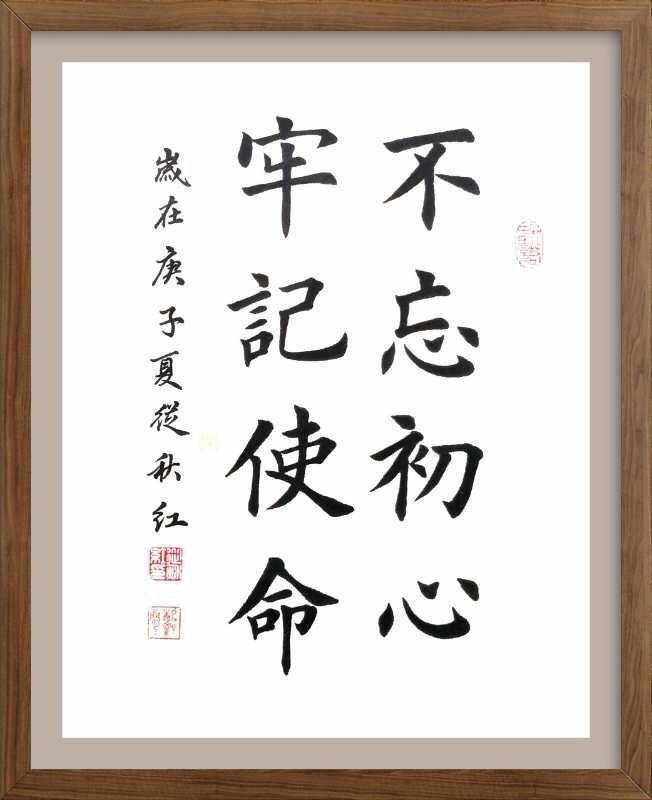 不忘初心
牢記使命
歲在庚子夏從秋紅